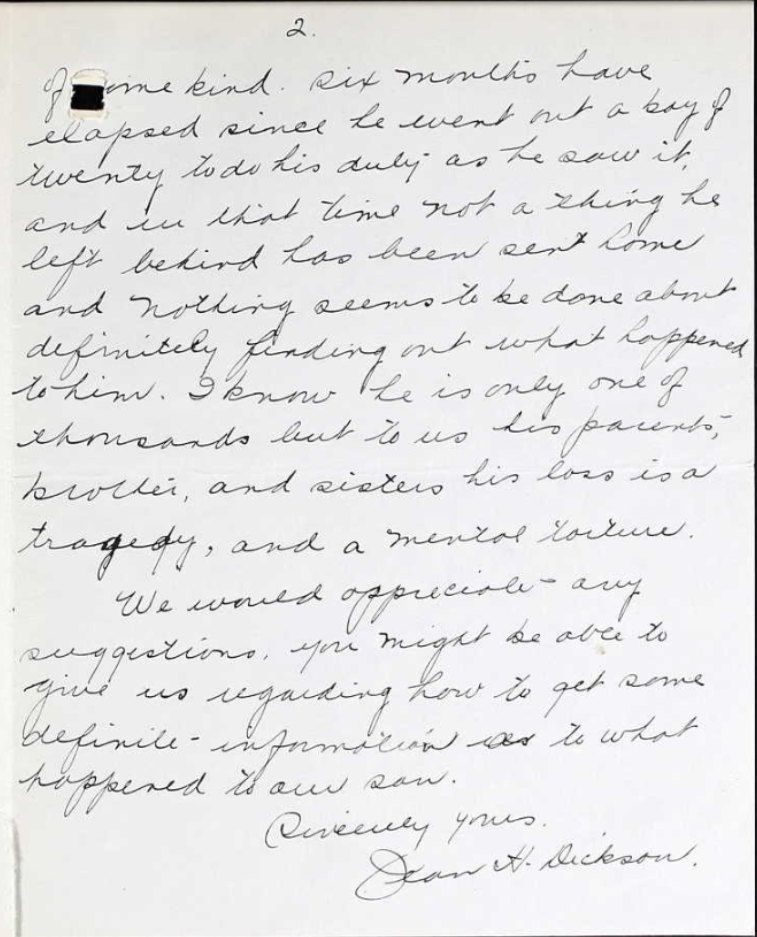 2.
of some kind. Six months have
elapsed since he went out a boy of
twenty to do his duty as he saw it,
and in that time not a thing he
left behind has been sent home
and nothing seems to be done about
definitely finding out what happened
to him. I know he is only one of
thousands but to us his parents,
brother, and sisters his loss is a
tragedy, and a mental torture.
We would appreciate any
suggestions, you might be able to
give us regarding how to get some
definite information as to what
happened to our son.
Sincerely yours.
Jean H. Dickson.